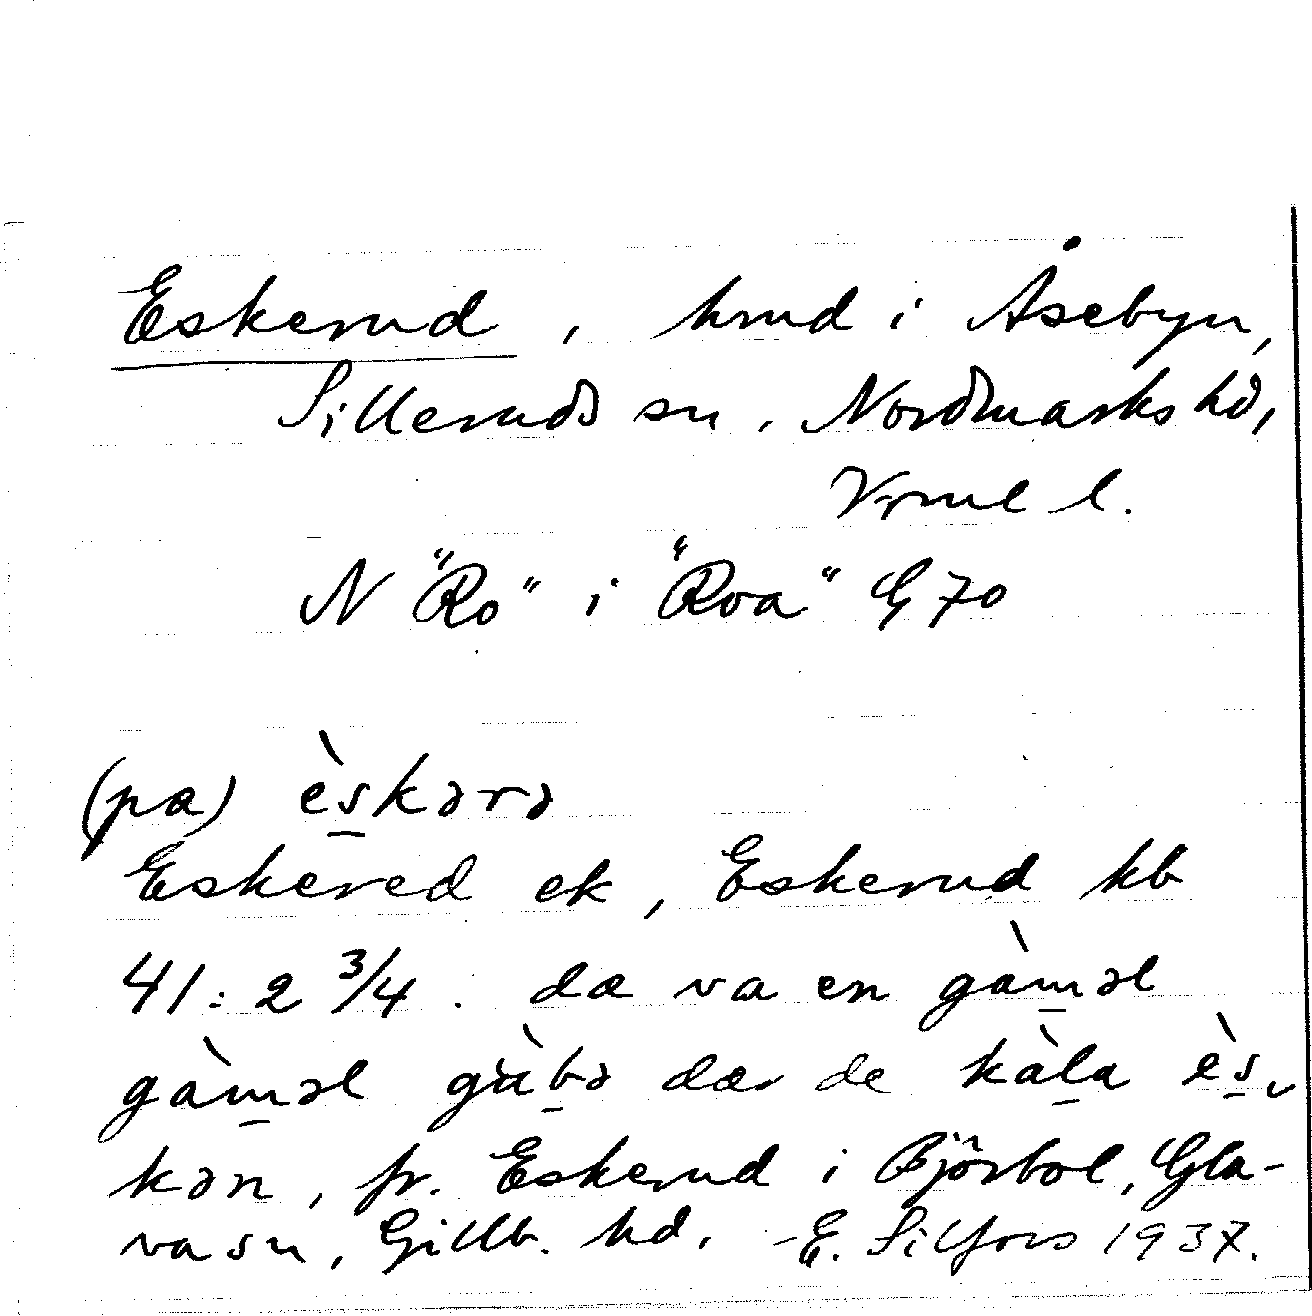 Eskerud, hmd i Åsebyn,
Silleruds sn, Nordmarks hd,
Vrml l.
N "Ro" i "Roa" G 70
(pa) ès̲kərə
Eskered ek, Eskerud kb
41:2 3/4. dæ va en gàm̲əl
gàm̲əl gùb̲ə dær de kàl̲a ès̲-
kən, fr. Eskerud i Björbol, Gla-
va sn, Gillb. hd. - E. Silfors 1937.